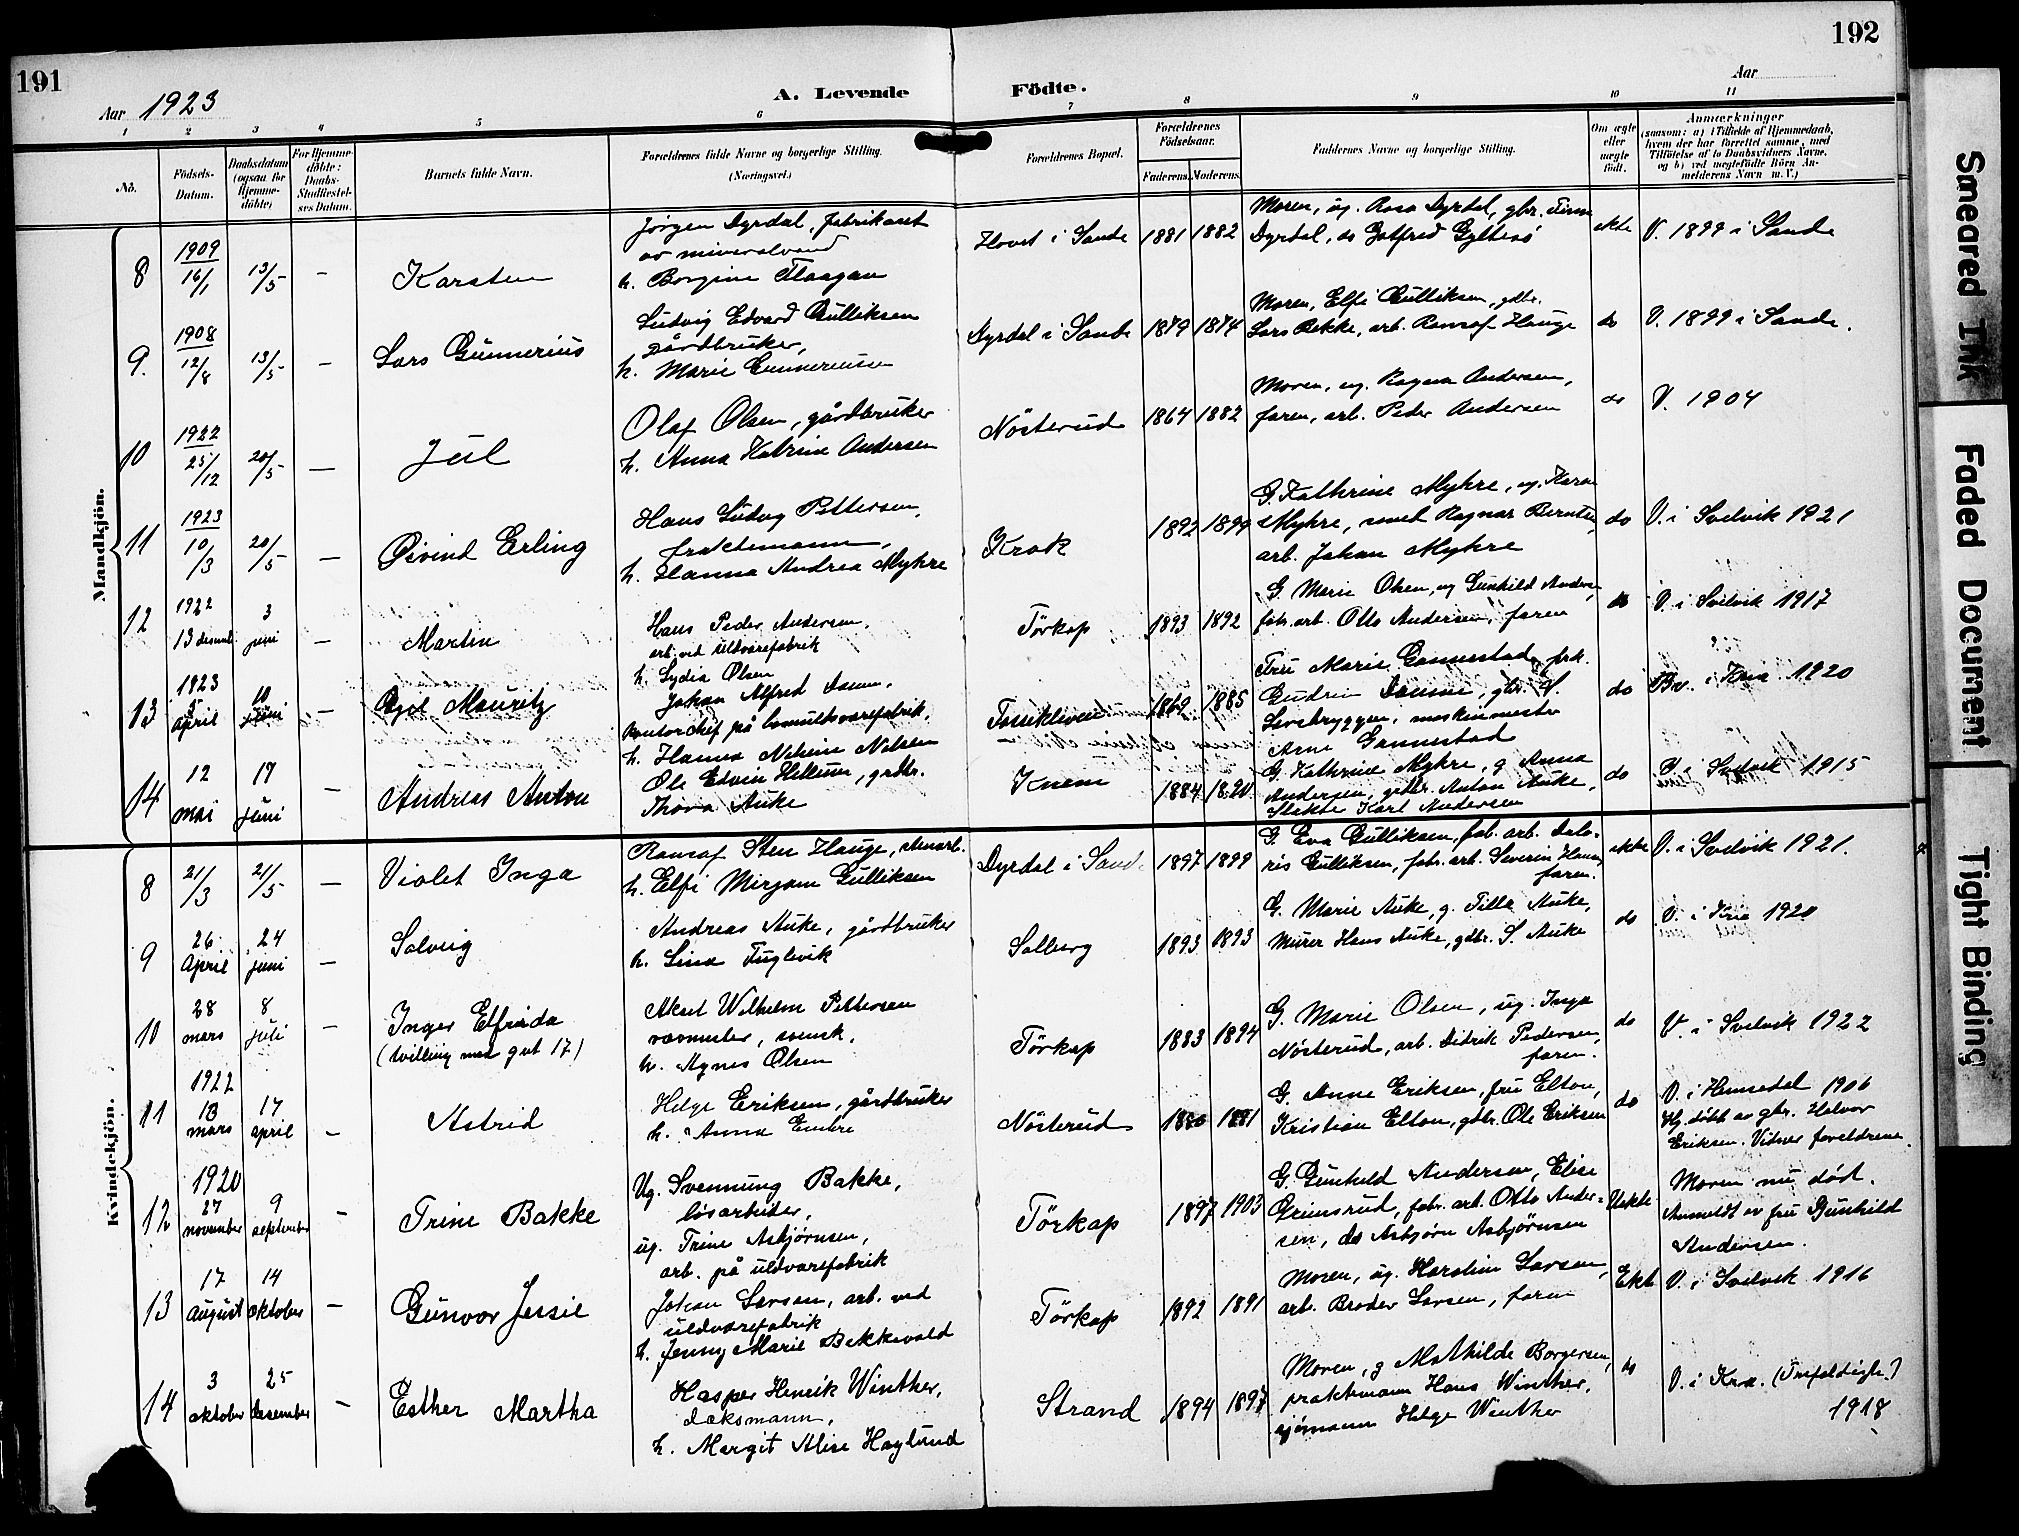 191
192
Aar 1923
A. Levende
Födte.
Aar
1 2 3 4 5 6 7 8 9 10 11
No.
Födsels-Datum.
Daabsdatum (ogsaa for Hjemme-döbte)
For Hjemme-döbte: Daabs-Stadfæstel-ses Datum.
Barnets fulde Navn.
Forældrenes fulde Navne og borgerlige Stilling. (Næringsvei.)
Forældrenes Bopæl.
Forældrenes Födselsaar.
Faderens. Moderens.
Faddernes Navne og borgerlige Stilling.
Om ægte eller uægte födt.
Anmærkninger (saasom: a) i Tilfælde af Hjemmedaab, hvem der har forrettet samme, med Tilföielse af to Daabsvidners Navne, og b) ved uægtefödte Börn An-melderens Navn m. V.)
Mandkjön.
8 1909 16/1 13/5 – Karsten
Jörgen Dyrdal, fabrikant
av mineralvand
h. Borgine Flaagan
Hovet i Sande 1881 1882
Moren, ug. Rosa Dyrdal, gbr. Finn
Dyrdal, do Gotfred
ekte V. 1899 i Sande
9. 1908 12/8 13/5 – Lars Gunnerius
Ludvig Edvard Gulliksen
gårdbruker,
h. Marie Gunnereusen
Dyrdal i Sande 1879 1874
Moren, Elfi Gulliksen, gdbr.
Lars Bekke, arb. Ransof Hauge
do V. 1899 i Sande.
10 1922 25/12 20/5 – Jul
Olaf Olsen, gårdbruker
h. Anna Katrine Andersen
Nösterud 1864 1882
Moren, ug. Ragna Andersen,
faren, arb. Peder Andersen
do V. 1904
11 1923 10/3 20/5 – Øivind Erling
Hans Ludvig Pettersen,
fraktemann,
h. Hanna Andrea Myhre
Krok 1892 1899
G. Kathrine Myhre, ug. Karen
Myhre, smed Ragnar Berntsen,
arb. Johan Myhre
do V. i Svelvik 1921
12 1922 13 desemb. 3 juni – Martin
Hans Peder Andersen,
arb. ved uldvarefabrik
h. Lydia Olsen
Törkop 1893 1892
G. Marie Olsen, ug Gunhild Anders.,
fabr.arb. Otto Andersen, faren
do V. i Svelvik 1917
13 1923 5 april 10 juni – Egil Mauritz
Johan Alfred Damm,
kontorchef på bomuldsvarefabrik,
h. Hanna Nilsine Nilsen
1869 1885
Fru Marie Gannestad, frk.
Gudrun Damm, gbr. S.
maskinmester
Arne Gannestad
do Bv. i Kria 1920
14 12 mai 17 juni – Andreas Anton
Ole Edvin Hellum, grdbr.
Thora Auke
Knem 1884 1820
G. Kathrine Myhre, g Anna
Andersen, grdbr. Anton Auke,
Slakter Karl Andersen
do V i Svelvik 1915
Kvindekjön.
8 21/3 21/5 – Violet Inga
Ransof Sten Hauge, stenarb.
h. Elfi Mirjam Gulliksen
Dyrdal i Sand. 1897 1899
G. Eva Gulliksen, fab. arb. Dalo-
ris Gulliksen, fabr. arb. Severin
faren.
ekte V. i Svelvik 1921.
9 26 April 24 juni – Solveig
Andreas Auke, gårdbruker
h. Lina Fuglevik
Solberg 1893 1893
G. Marie Auke, g. Tilla Auke,
Murer Hans Auke, gdbr. S. Auke
do V. i Kria 1920
10 28 mars 8 juli – Inger Elfrida
(tvilling med gut 17)
Aksel Wilhelm Pettersen
svensk,
h. Agnes Olsen
Törkop 1883 1894
G. Marie Olsen, ug. Inga
Nösterud, arb. Didrik Pedersen,
faren.
do V. i Svelvik 1922
11 1922 13 mars 17 april – Astrid
Helge Eriksen, gårdbruker
h. Anna Embre
Nösterud 1880 1881
G. Anne Eriksen, fru Elton,
Kristian Elton, gdbr. Ole Eriksen
do V. i Hemsedal 1906
Hj. döbt av gbr. Halvor
Eriksen. Vidner foreldrene.
12 1920 27 november 9 september – Trine Bakke
Ug. Svennung Bakke,
lösarbeider,
ug. Trine Asbjørnsen,
arb. på uldvarefabrik
Törkop 1897 1903
G. Gunhild Andersen, Elise
Grimsrud, fabr. arb. Otto Ander-
sen, do Asbjørn Asbjørnsen
Uekte Moren nu död.
Anmeldt av fru Gunhild
Andersen.
13 17 august 14 oktober – Gunvor Jessie
Johan Larsen, arb. ved
uldvarefabrik
h. Jenny Marie Bekkevold
Törkop 1892 1891
Moren, ug. Karoline Larsen,
arb. Broder Larsen, faren
Ekt. V. i Svelvik 1916
14 3 oktober 25 desember – Esther Martha
Kasper Henrik Winther,
dæksmann,
h. Margit Alise Haglund
Strand 1894 1897
Moren, g Mathilde Borgersen,
fraktemann Hans Winther,
sjømann Helge Winther
do V. i Kra. (Trefoldigh.)
1918
Smeared Ink
Faded Document
Tight Binding